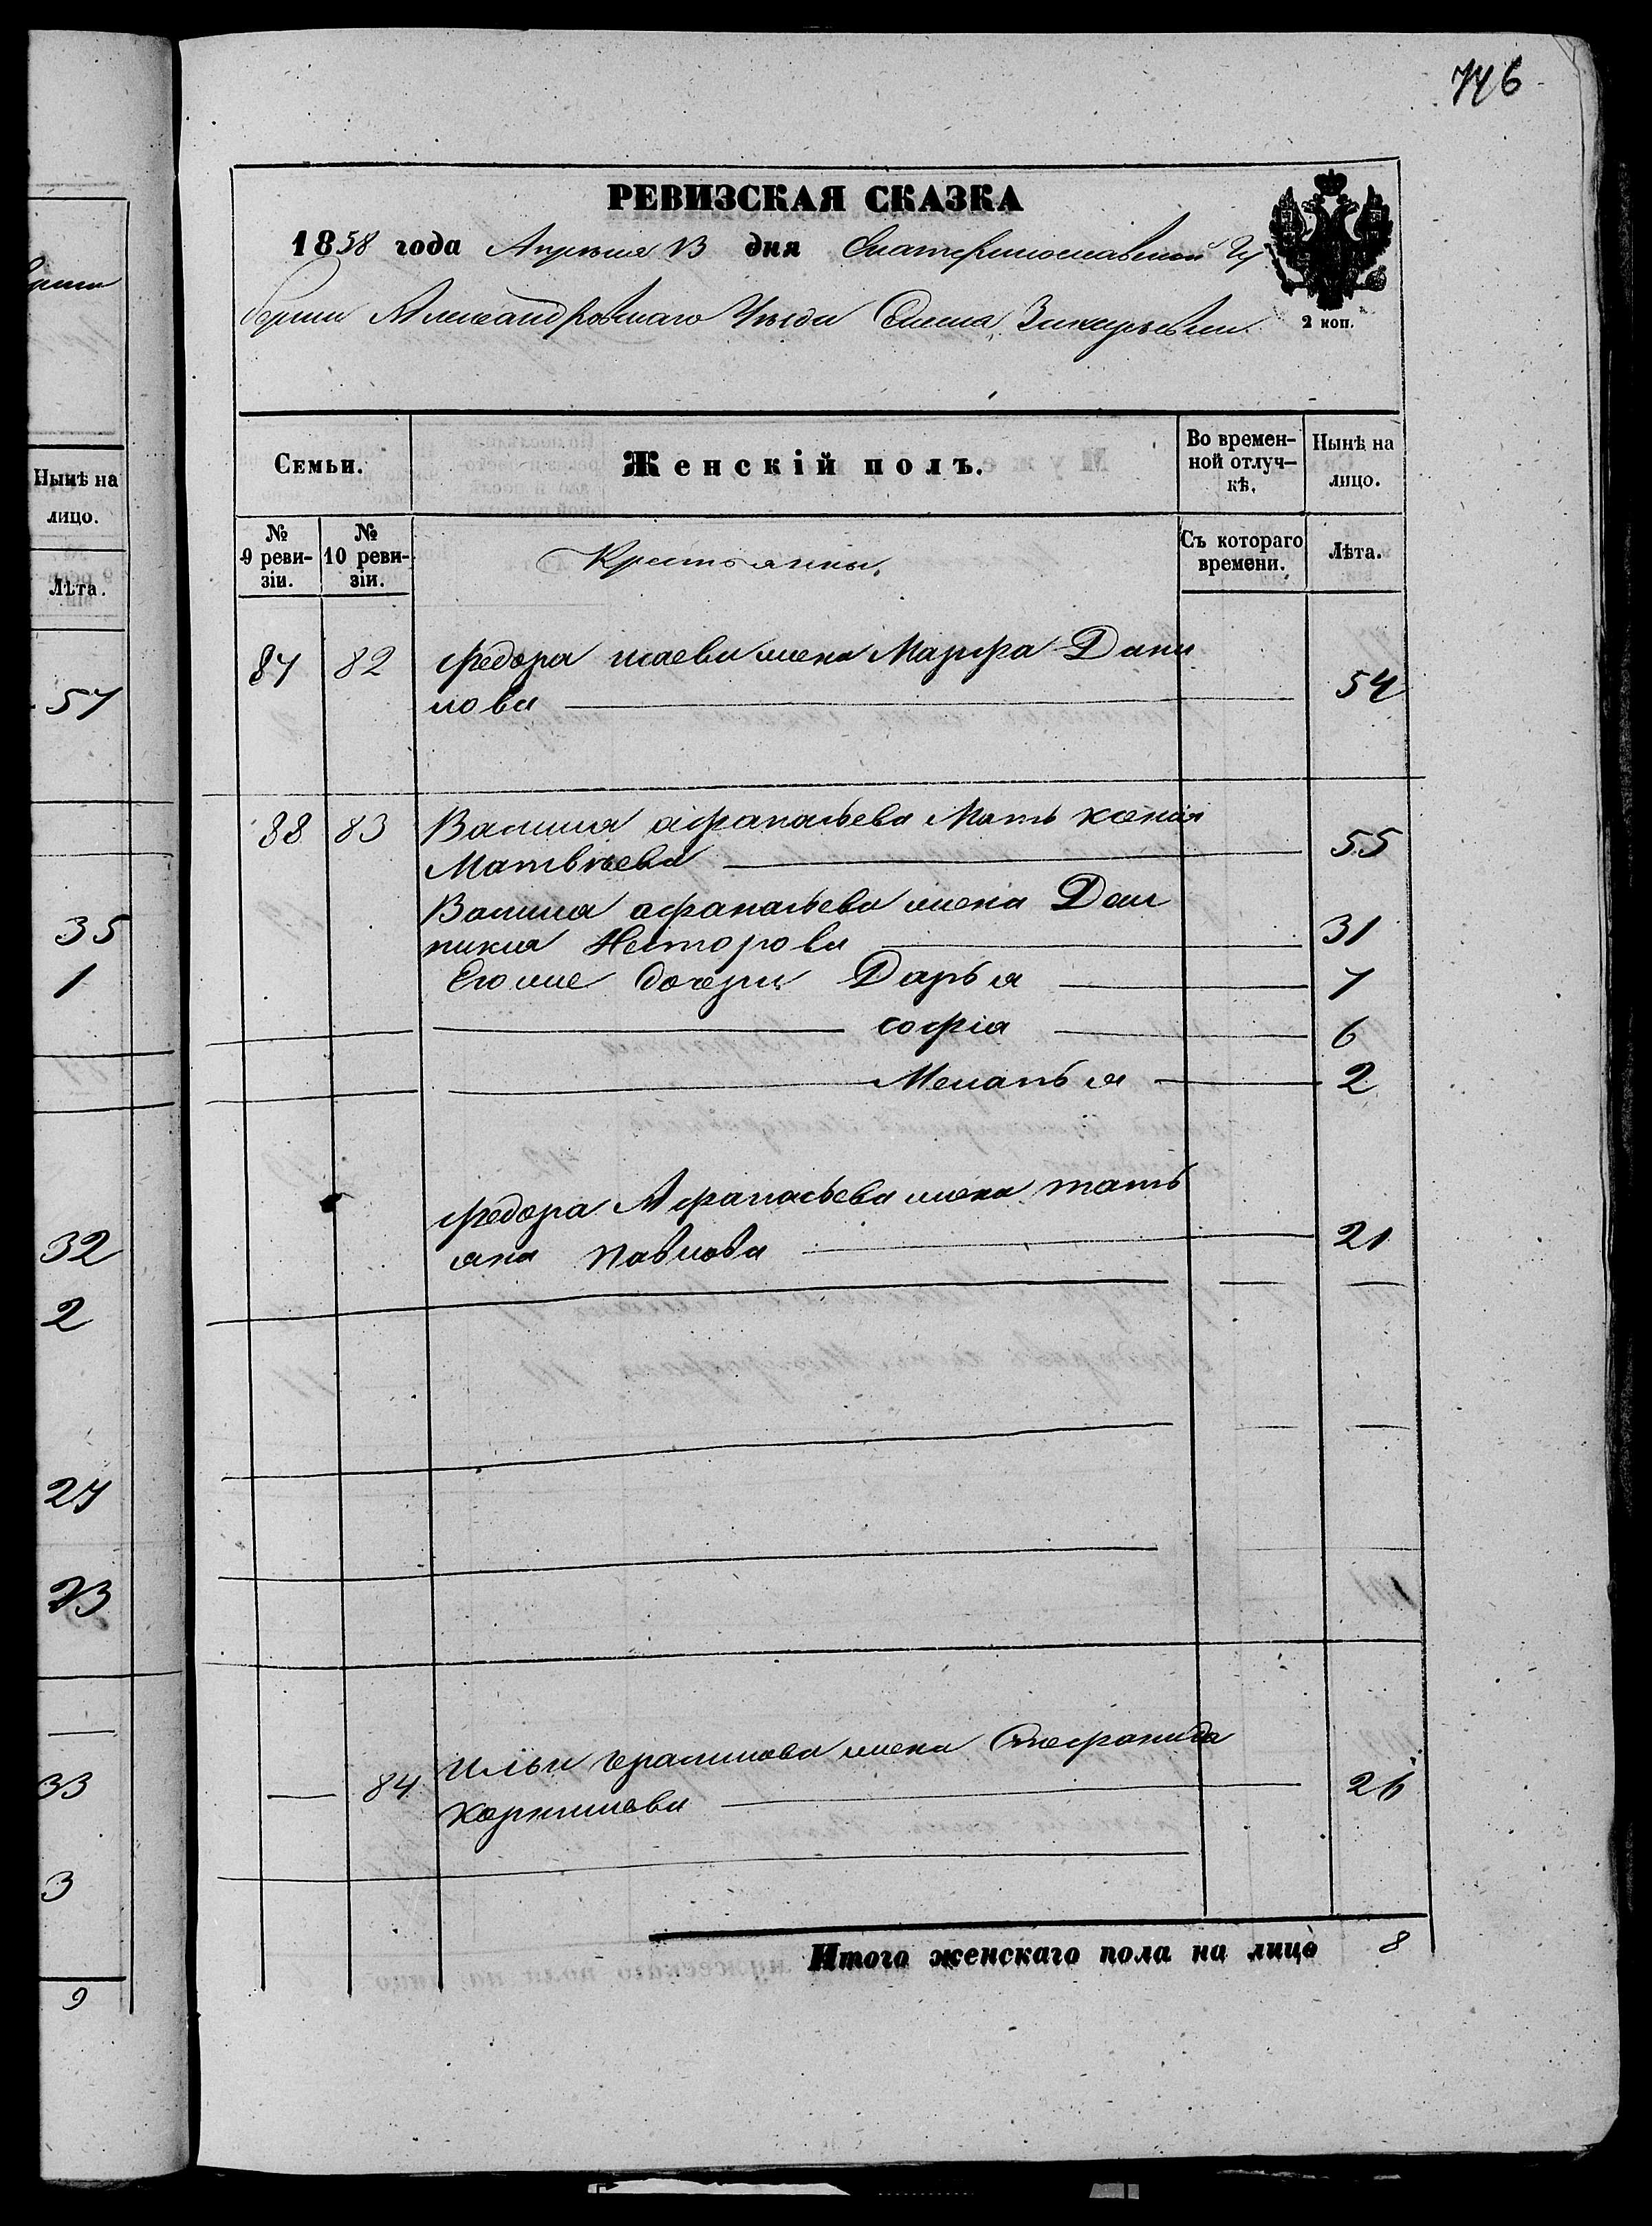 746
РЕВИЗСКАЯ СКАЗКА
1858 года Апреля 13 дня Екатеринославской Гу
берніи Александровскаго Уѣзда Села Захарьевки
2 коп.
Семьи.
Женскій полъ.
Во времен-
ной отлуч-
кѣ.
Нынѣ на
лицо.
№
9 реви-
зіи.
№
10 реви-
зіи.
Крестьянны.
Съ котораго
времени.
Лѣта.
87 82 Федора исаева жена Марфа Дани
лова 54
88 83 Василия афанасьева Мать ксенія
Матвѣева 55
Василия афанасьева жена Дом
никия Несторова 31
Его же дочери Дарья 7
софіа 6
Меланья 2
Федора Афанасьева жена тать
яна павлова 21
84 Ильи герасимова жена Стефанида
корнилова 26
Итого женскаго пола на лицо 8
Нынѣ на
лицо.
Лѣта.
57
35
1
32
2
27
23
33
3
9